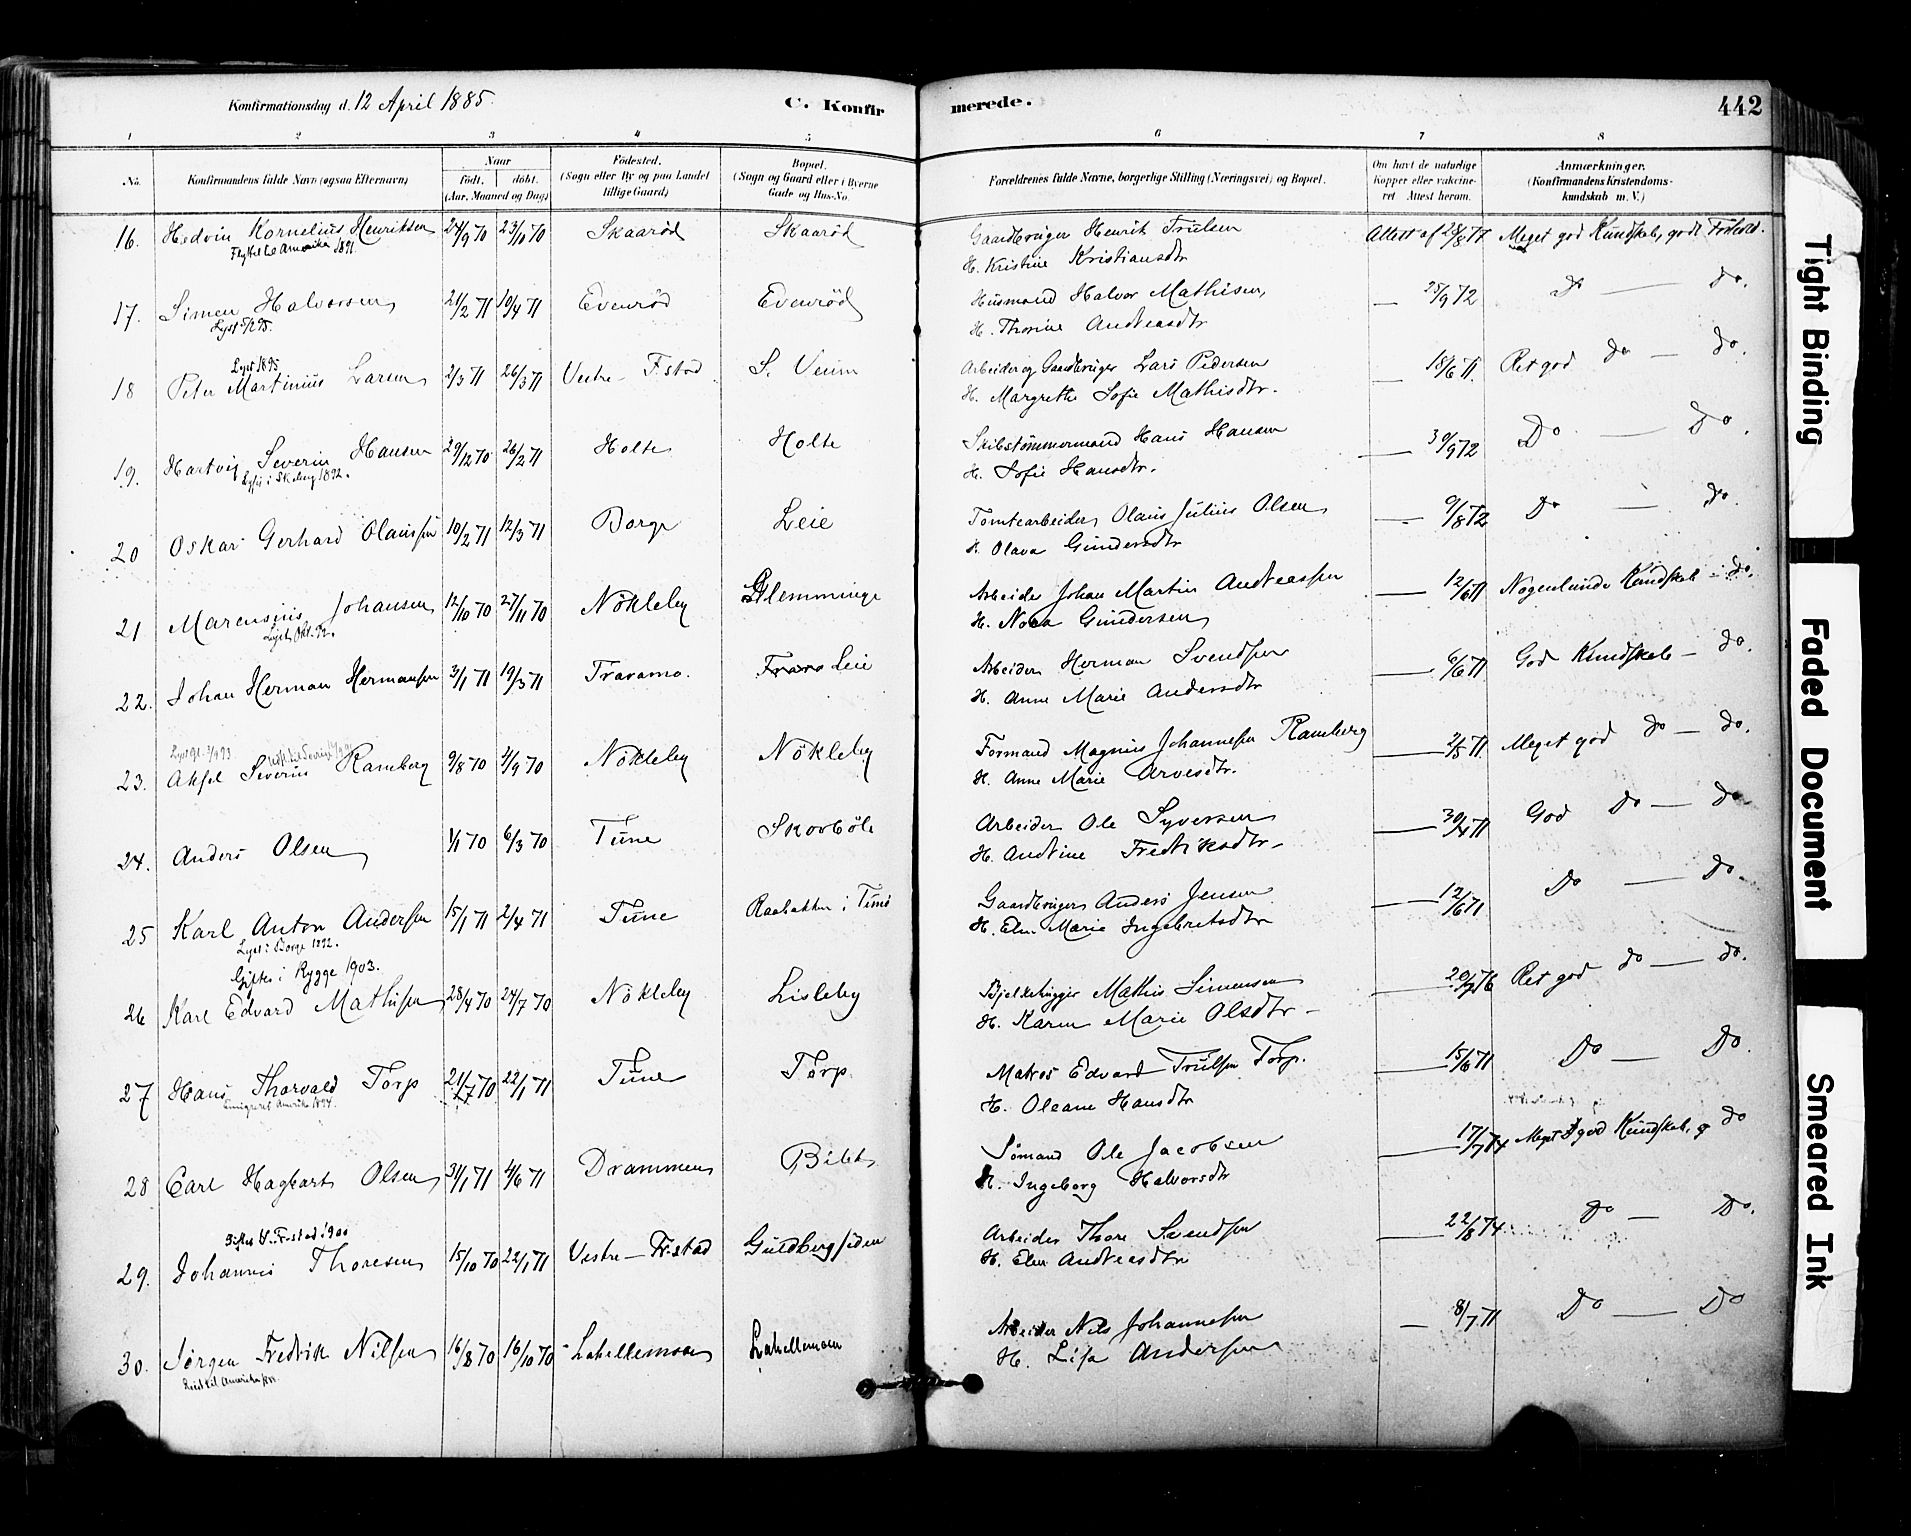 Konfirmationsdag d. 12 April 1885. C. Konfirmerede. 442
1 2 3 4 5 6 7 8
No. Konfirmandens fulde Navn (ogsaa Efternavn) Naar Födt. döbt. (Aar, Maaned og Dag) Födested. (Sogn eller By og paa Landet tillige Gaard) Bopæl. (Sogn og Gaard eller i Byerne Gade og Hus-No. Forældrenes fulde Navne, borgerlige Stilling (Næringsvei) og Bopæl. Om havt de naturlige Kopper eller vakcineret Attest herom. Anmærkninger. (Konfirmandens Kristendomskundskab m. V.)
16. Hedvin Kornelius Henriksen 24/9 70 23/10 70 Skaaröd Skaaröd Gaardbruger Henrik Trulsen Attest af 24/8 77 Meget god Kundskab, godt Forhold.
Flyttet til Amerika 1891. H. Kristine Kristiansdtr
17. Simen Halvorsen 21/2 71 10/4 71 Evenröd Evenröd Husmand Halvor Mathisen — 25/9 72 Do — Do.
Lyst 5/2 95. H. Thorine Andreasdtr
Lyst 1895
18 Peter Martinius Larsen 2/3 71 26/3 71 Vestre F.stad S. Veum Arbeider og Gaardbruger Lars Pedersen — 18/6 71. Ret god do — do.
H. Margrethe Sofie Mathisdtr.
19. Hartvig Severin Hansen 29/12 70 26/2 71 Holte Holte Skibstömmermand Hans Hansen — 30/9 72 Do — Do.
Lyst i Skeberg 1892. H. Sofie Hansdtr.
20 Oskar Gerhard Olaussen 10/2 71 12/3 71 Borge Leie Tomtearbeider Olaus Julius Olsen — 9/8 72 Do — do.
H. Olava Gundersdtr
21 Marensius Johansen 12/10 70 27/11 70 Nökleby Glemminge Arbeider Johan Martin Andreassen — 12/6 71 Nogenlunde Kundskab - do.
Lyst Okt. 92. H. Noва Gundersen
22. Johan Herman Hermansen 3/1 71 19/3 71 Traramo. Leie Arbeider Herman Svendsen — 6/6 71 God Kundskab - do.
H. Anne Marie Andersdtr
23. Aksel Severin Ramberg 9/8 70 4/9 70 Nökleby Nökleby Formand Magnus Johannesen Ramberg — 2/5 71 Meget god do — do.
H. Anne Marie Arvesdtr.
24. Anders Olsen 1/1 70 6/3 70 Tune Skovböle Arbeider Ole Syversen — 30/4 71 God do — do.
H. Andrine Fredriksdtr.
25 Karl Anton Andersen 15/1 71 2/4 71 Tune Raabakken i Tune Gaardbruger Anders Jensen — 12/6 71 Do — do.
Lyst i Borge 1892. H. Elen Marie Ingebretsdtr
Giftes i Rygge 1903.
26 Karl Edvard Mathisen 28/4 70 24/7 70 Nökleby Lisleby Bjelkehugger Mathis Simensen — 20/7 76 Ret god do — do.
H. Karen Marie Olsdtr -
27 Hans Thorvald Torp 21/7 70 22/1 71 Tune Torp Matros Edvard Trulsen Torp. — 15/6 71 Do — Do.
Emigreret Amerika 1894. H. Oleane Hansdtr
28 Carl Hagbart Olsen 31/1 71 4/6 71 Drammen Bilet Sömand Ole Jacobsen — 17/7 74 Meget god Kundskab, g do
H. Ingeborg Halvorsdtr
Giftes V. F.stad 1900
29. Johannes Thoresen 15/10 70 22/1 71 Vestre - Fr.stad Guldbergsiden Arbeider Thore Svendsen — 22/8 74 Do — Do.
H. Elen Andreasdtr
30. Jörgen Fredrik Nilsen 16/8 70 16/10 70 Lahellemoen Lahellemoen Arbeider Nils Johannesen — 8/7 71 Do — Do
Reist til Amerika H. Lisa Andersen
Tight Binding
Faded Document
Smeared Ink